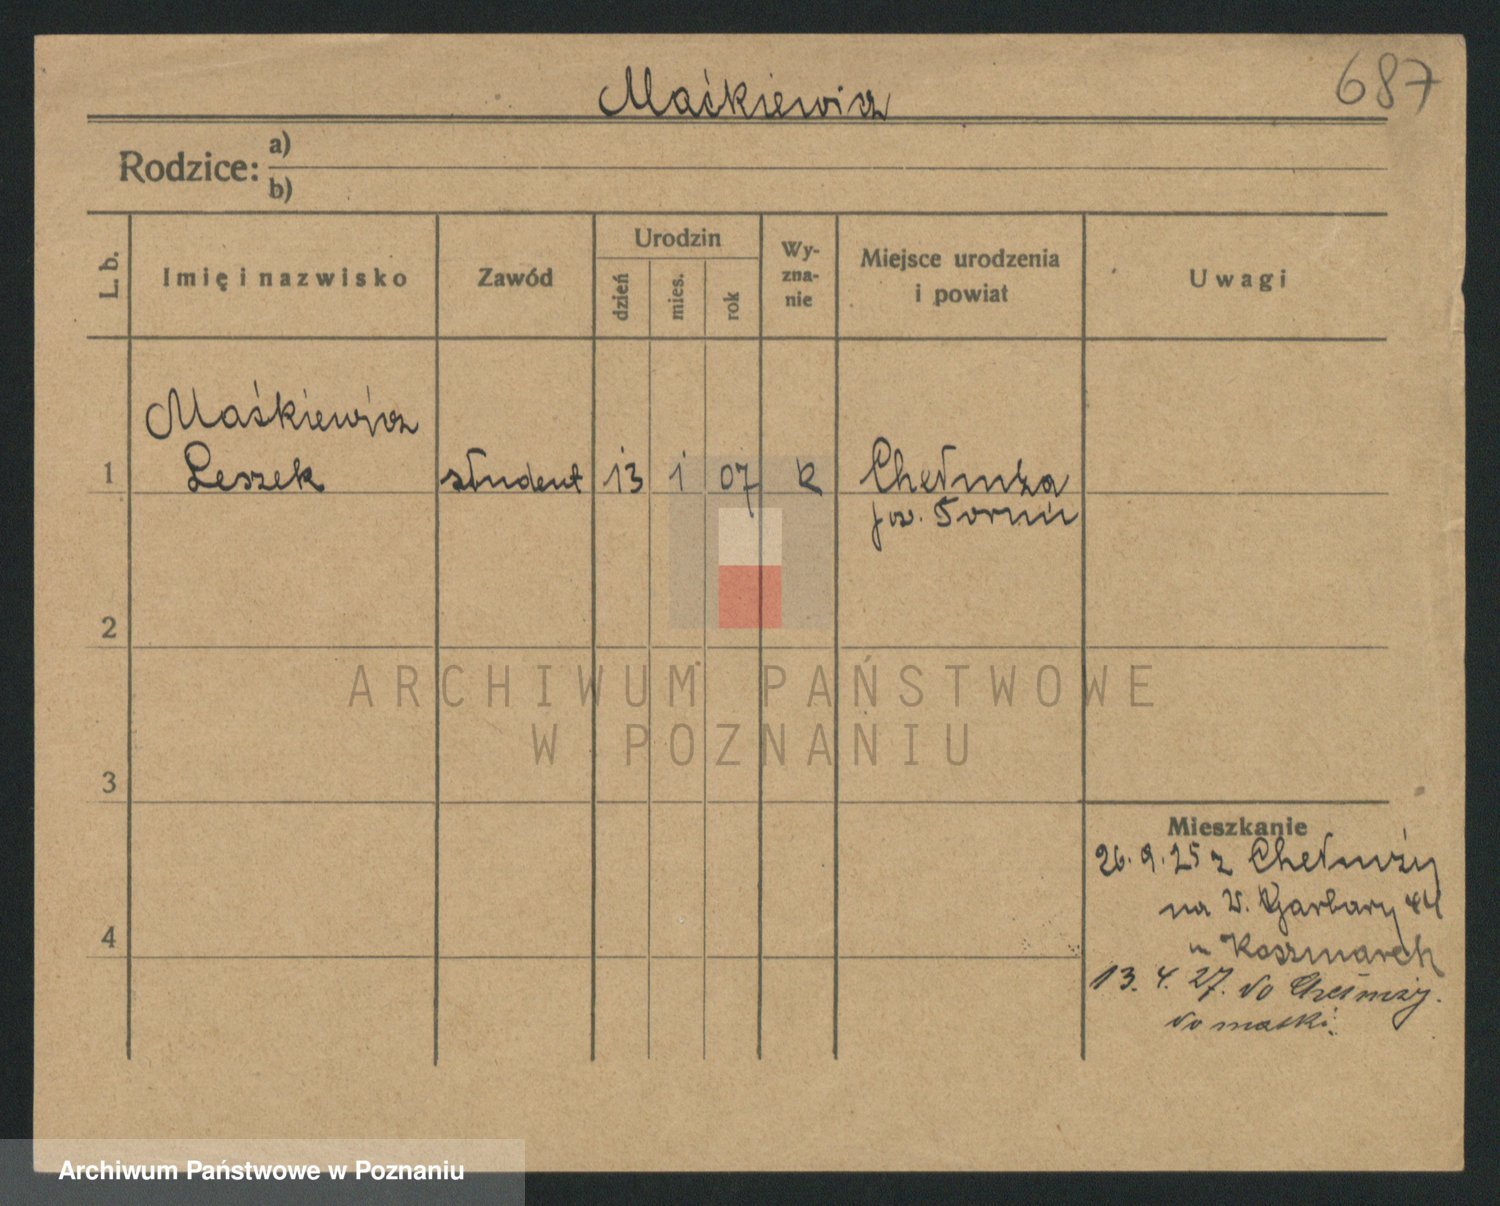 687
Maćkiewicz
Rodzice: a)
b)
L. b.
Imię i nazwisko
Zawód
Urodzin
dzień
mies.
rok
Wy-
zna-
nie
Miejsce urodzenia
i powiat
Uwagi
Maśkiewicz
1 Leszek student 13 1 07 k Chełmża
pow. Toruń
2
3
4
Mieszkanie
26.9.25 z Chełmży
na W. Garbary 44
u Koszmarek
13. 4. 27. do Chełmży.
do matki.
ARCHIWUM PAŃSTWOWE
W POZNANIU
Archiwum Państwowe w Poznaniu